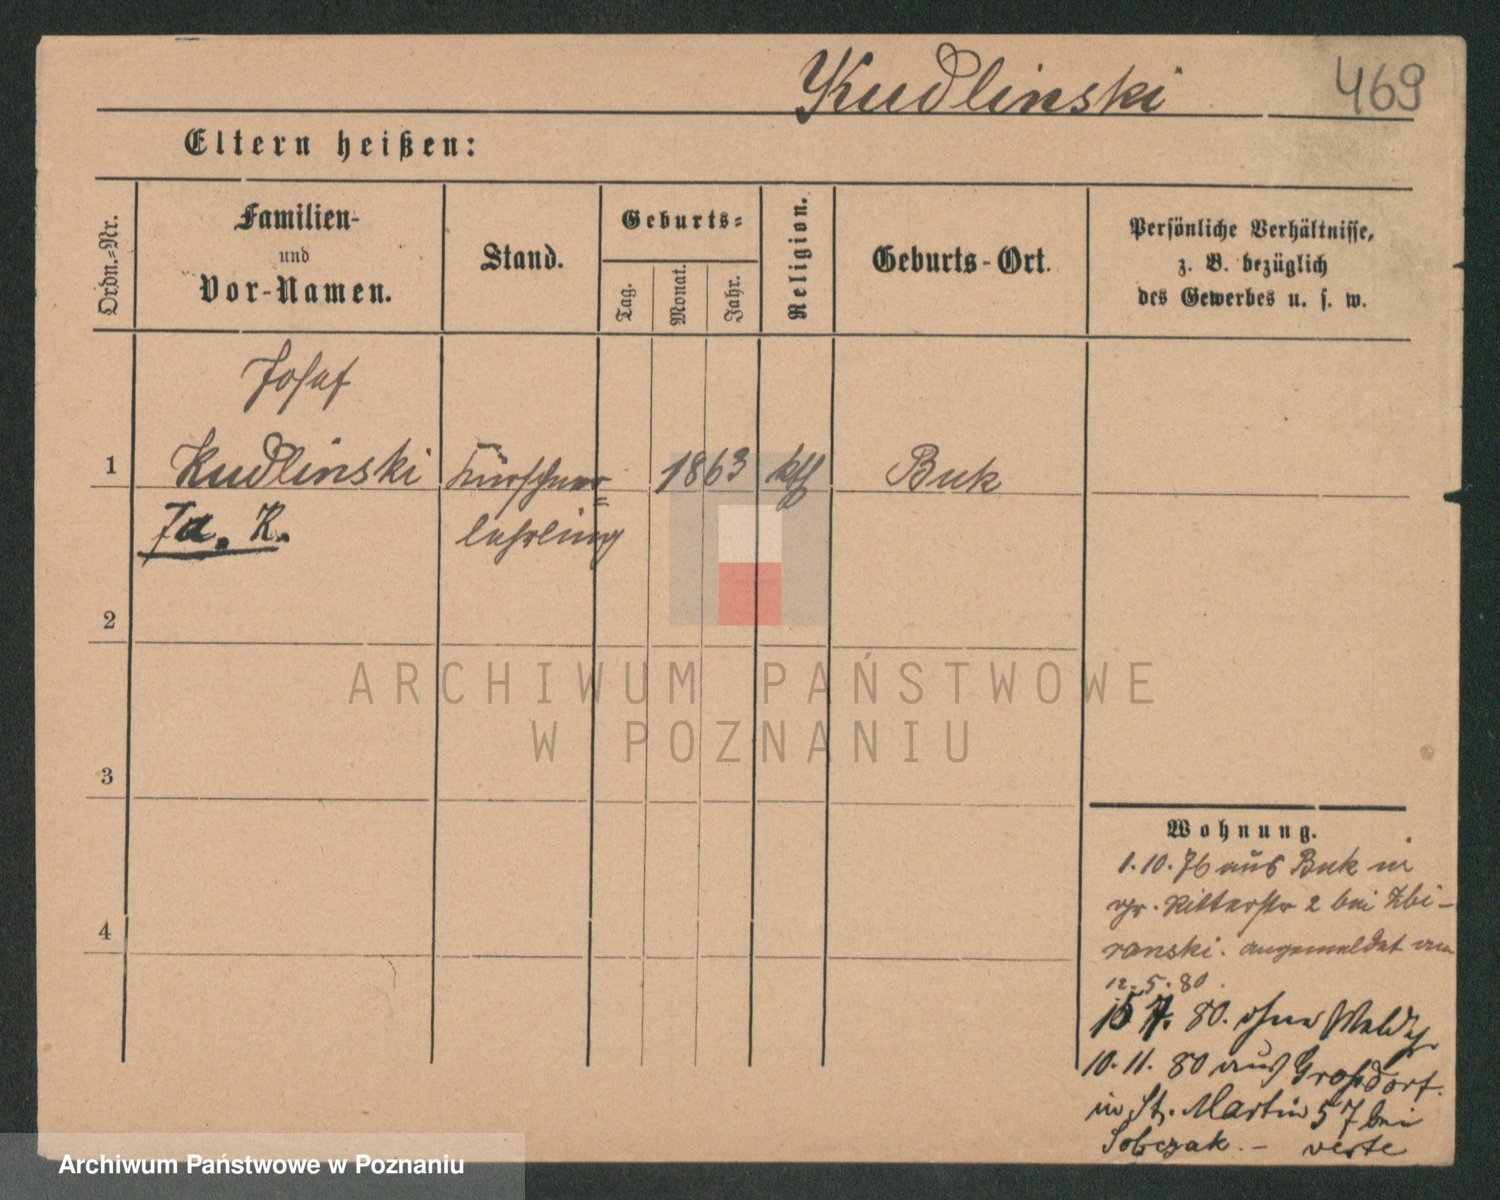 Kudlinski
469
Eltern heißen:
Ordn.=Nr.
Familien-
und
Vor-Namen.
Stand.
Geburts=
Tag.
Monat.
Jahr.
Religion.
Geburts-Ort.
Persönliche Verhältnisse,
z. B. bezüglich
des Gewerbes u. s. w.
Josef
1 Kudlinski Kürschner= 1863 kth Buk
K. lehrling
2
3
4
ARCHIWUM PAŃSTWOWE
W POZNANIU
Wohnung.
1.10.76 aus Buk in
gr. Ritterstr 2 bei Zbi-
ranski. angemeldet am
12.5.80.
15 7. 80. ohne Meldg.
10.11.80 aus Großdorf.
in St. Martin 57 bei
Sobczak. - verte
Archiwum Państwowe w Poznaniu